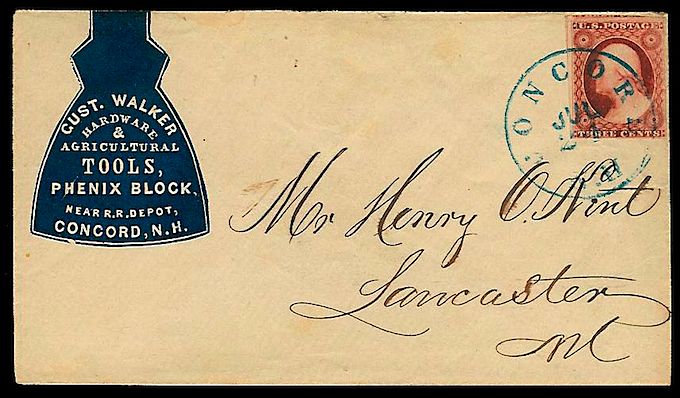 GUST. WALKER
HARDWARE
&
AGRICULTURAL
TOOLS,
PHENIX BLOCK,
NEAR R.R. DEPOT,
CONCORD, N.H.
U.S. POSTAGE
THREE CENTS
CONCOR
JUL
Mr Henry O. Kent
Lancaster